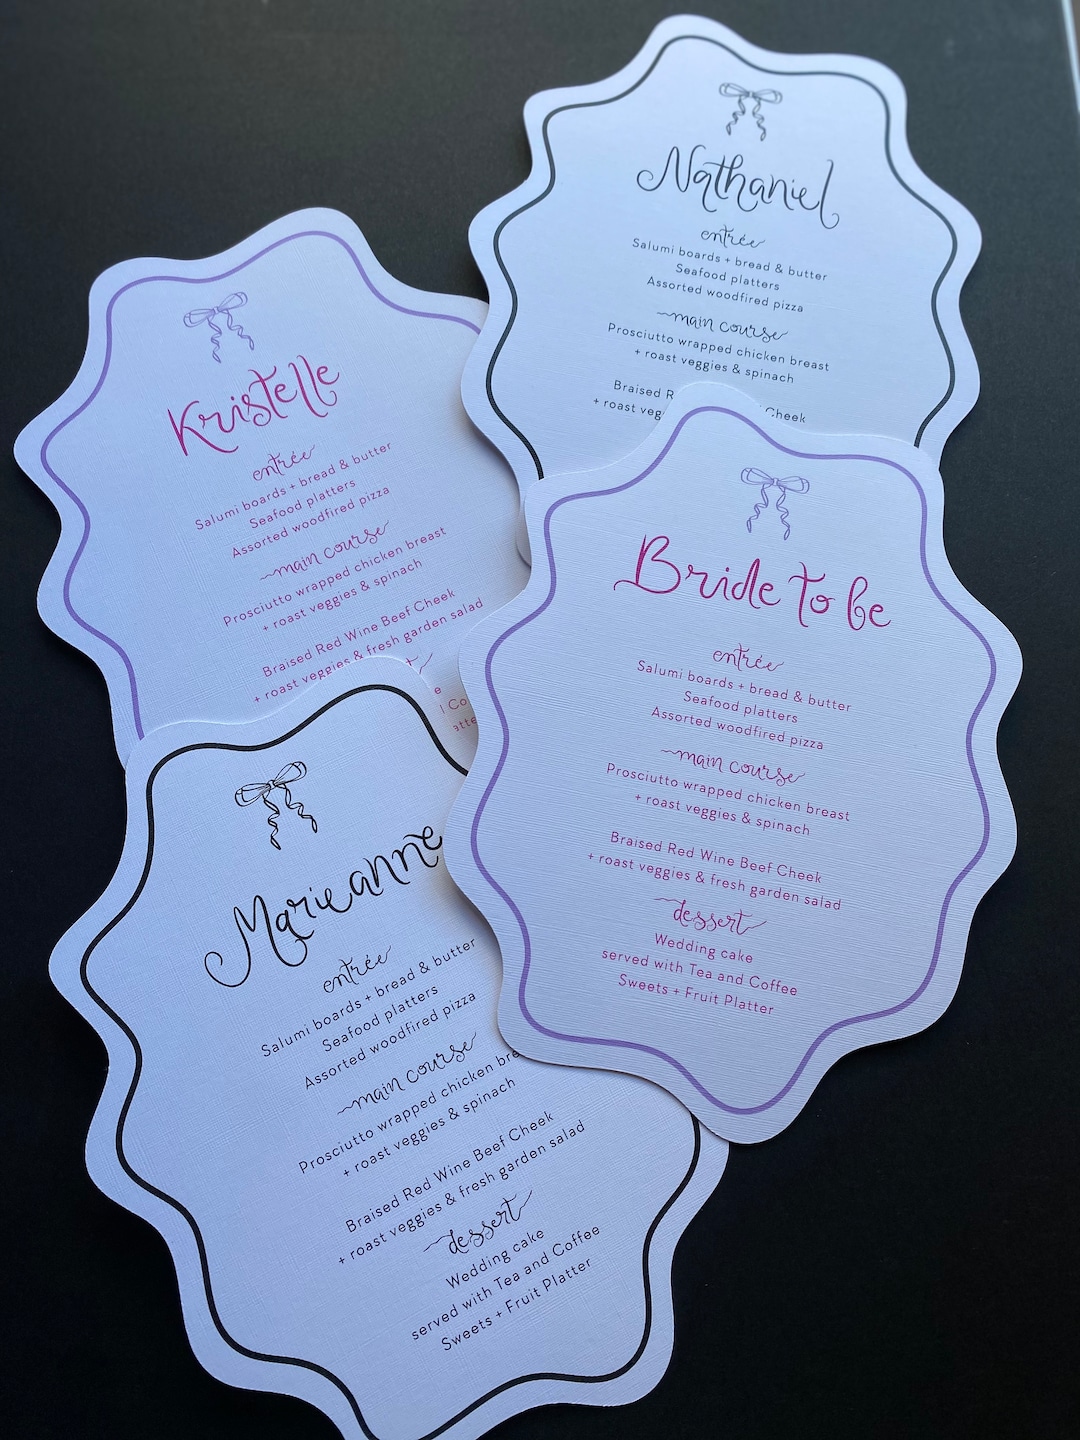 Nathaniel
entrée
Salumi boards + bread & butter
Seafood platters
Assorted woodfired pizza
main course
Prosciutto wrapped chicken breast
+ roast veggies & spinach
Braised Cheek
+ roast
Kristelle
entrée
Salumi boards + bread & butter
Seafood platters
Assorted woodfired pizza
main course
Prosciutto wrapped chicken breast
+ roast veggies & spinach
Braised Red Wine Beef Cheek
+ roast veggies & fresh garden salad
Bride to be
entrée
Salumi boards + bread & butter
Seafood platters
Assorted woodfired pizza
main course
Prosciutto wrapped chicken breast
+ roast veggies & spinach
Braised Red Wine Beef Cheek
+ roast veggies & fresh garden salad
dessert
Wedding cake
served with Tea and Coffee
Sweets + Fruit Platter
Marieanne
entrée
Salumi boards + bread & butter
Seafood platters
Assorted woodfired pizza
main course
Prosciutto wrapped chicken
+ roast veggies & spinach
Braised Red Wine Beef Cheek
+ roast veggies & fresh garden salad
dessert
Wedding cake
served with Tea and Coffee
Sweets + Fruit Platter